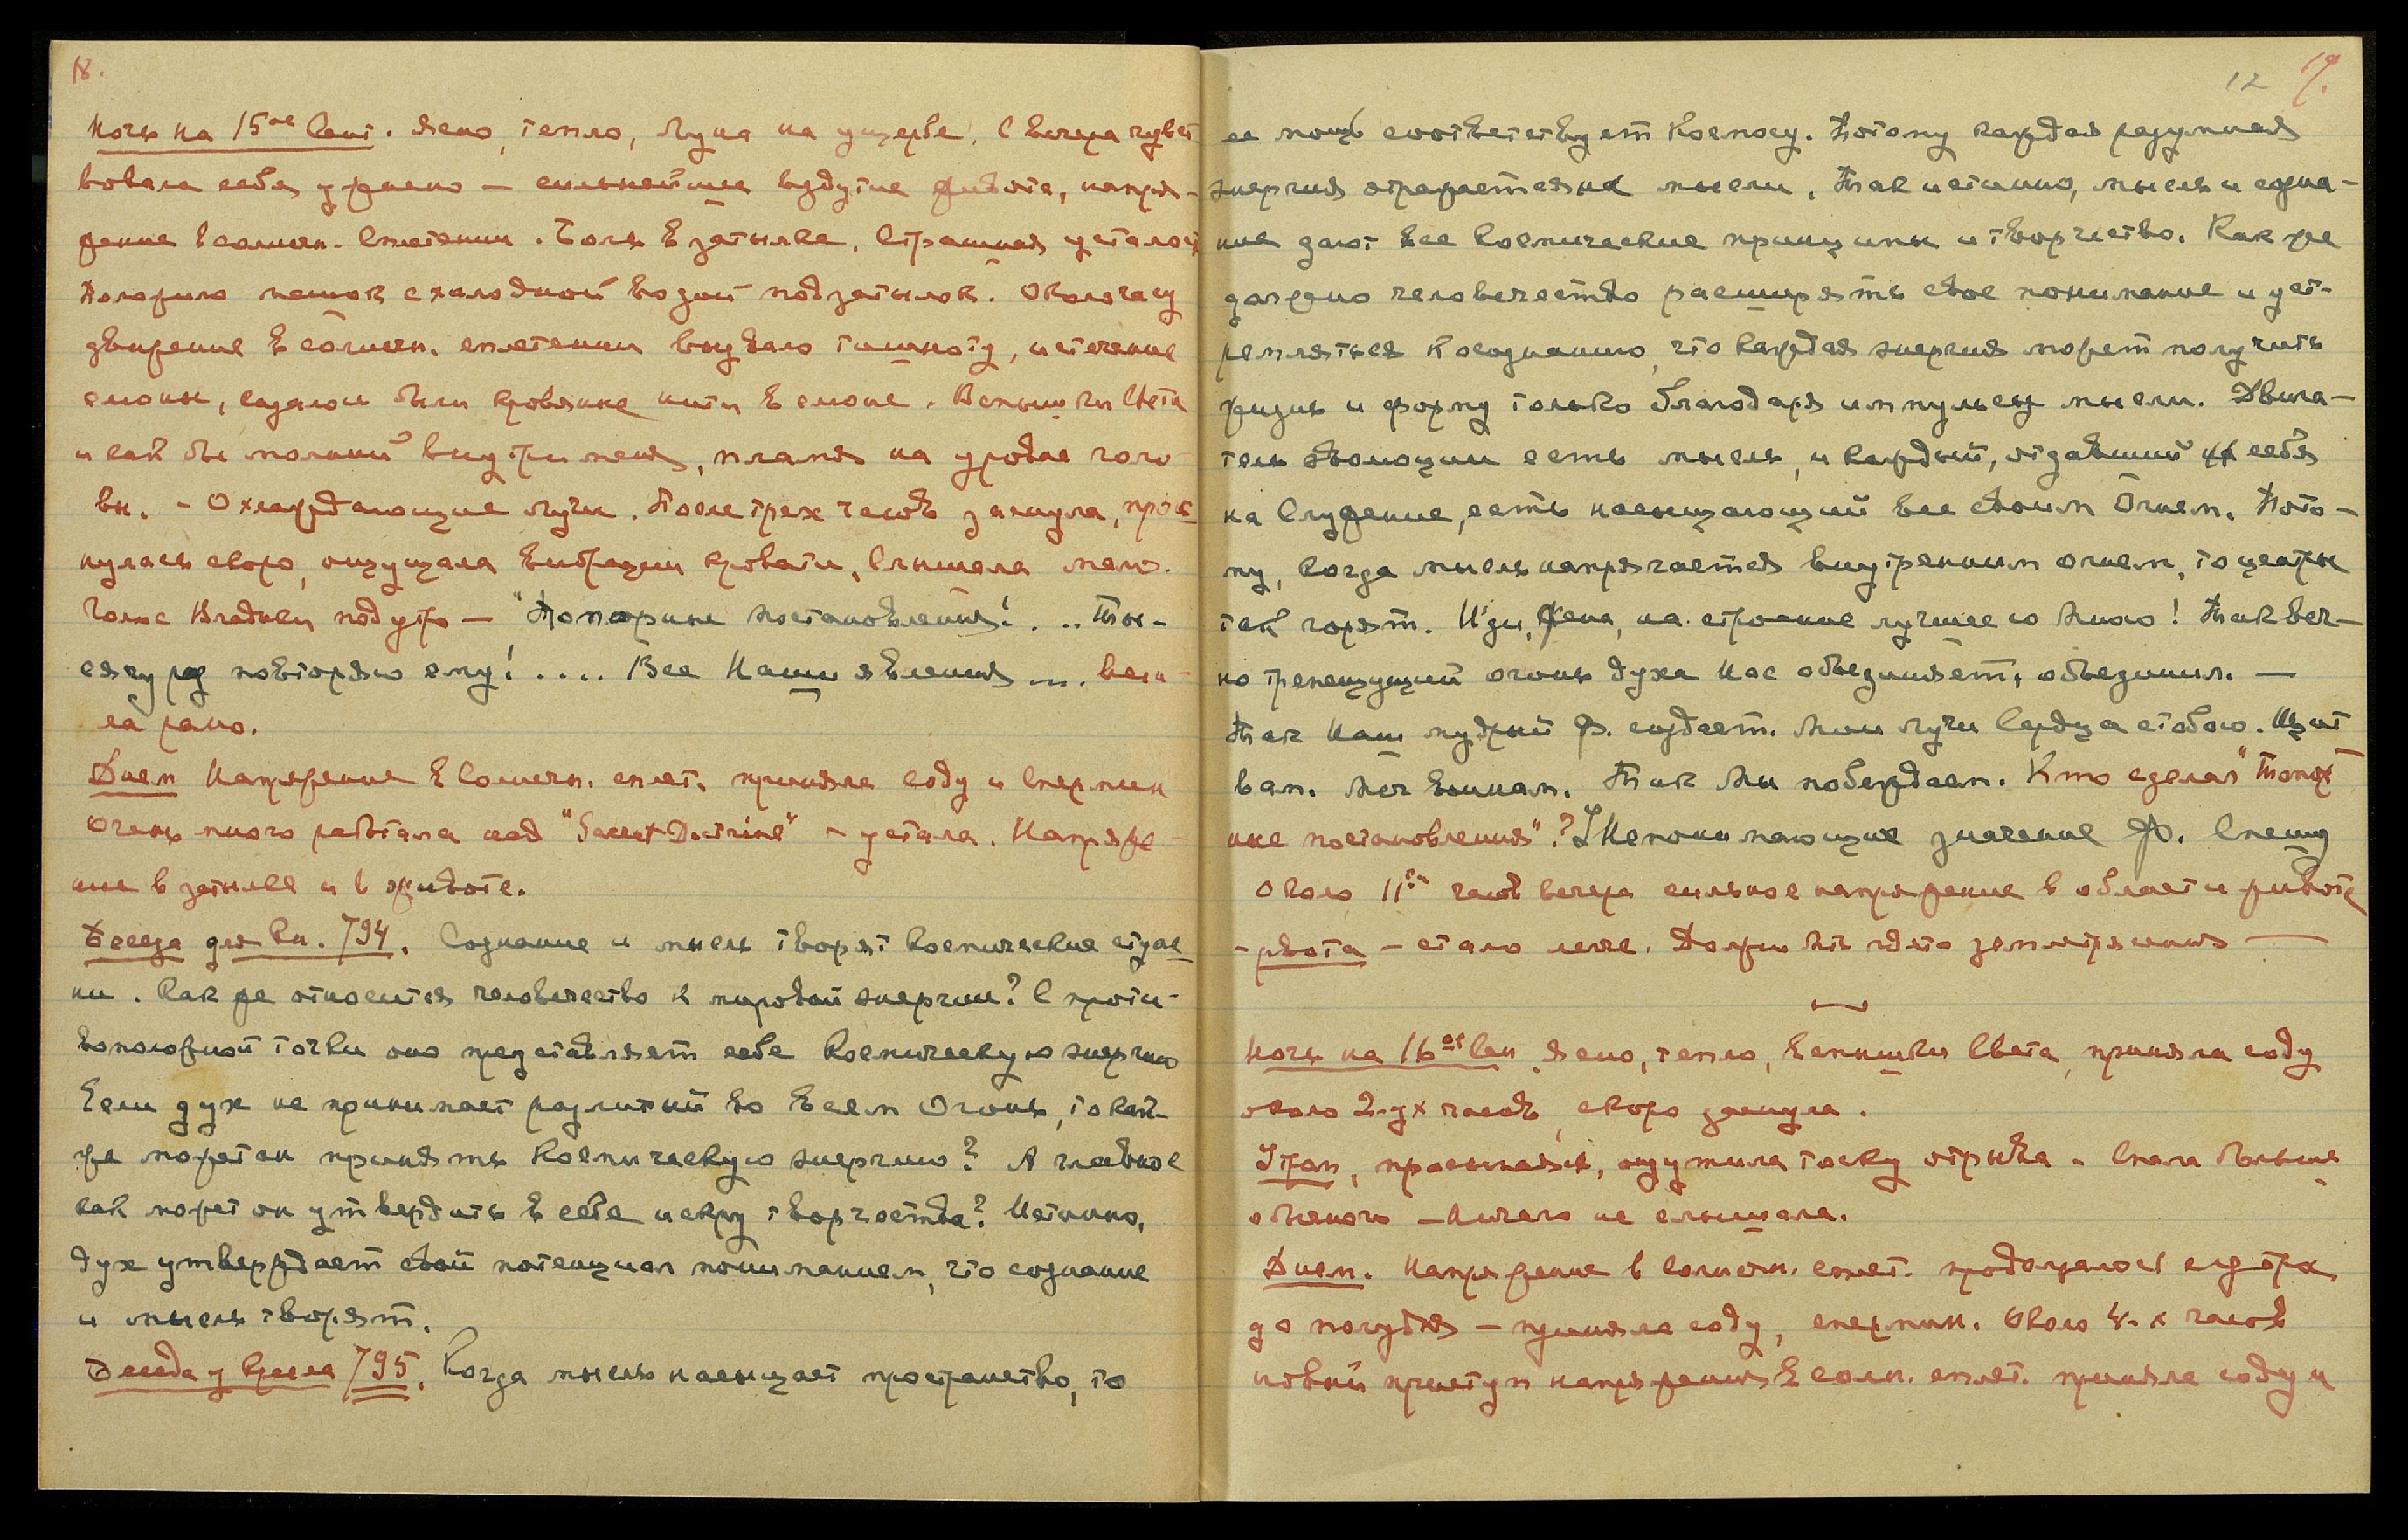 18.
Ночь на 15ое Сент. Ясно, тепло, луна на ущербе. С вечера чувст-
вовала себя ужасно — сильнейшее вздутие живота, напря-
жение в солнечн. сплетении. Боль в затылке. Страшная усталость
Положила мешок с холодной водой под затылок. Около часу
движение в солнечн. сплетении вызвало тошноту, истечение
слюны, сгустки были кровяные нити в слюне. Вспышки Света
и как бы молний внутри меня, пламя на уровне голо-
вы. - Охлаждающие лучи. После трех часов заснула, прос-
нулась скоро, ощущала вибрации кровати, слышала мало.
Голос Владыки под утро — "Топорные постановления! . .. Ты-
сячу раз повторяю ему! .... Все Наши явления ... вста-
ла рано.
Днем Напряжение в Солнечн. сплет. приняла соду и спермин
Очень много работала над "Secret Doctrine" - устала. Напряже-
ние в затылке и в животе.
Беседа для Кн. 794. Сознание и мысль творят космические ступе-
ни. Как же относится человечество к мировой энергии? С проти-
воположной точки оно представляет себе Космическую энергию
Если дух не принимает разлитый во всем Огонь, то как-
же может он принять Космическую энергию? А главное
как может он утвердить в себе искру творчества? Истинно,
дух утверждает свой потенциал пониманием, что сознание
и мысль творят.
Беседа у Кресла 795. Когда мысль насыщает пространство, то
12 19.
ее мощь соответствует Космосу. Потому каждая разумная
энергия отражается на мысли. Так истинно, мысль и созна-
ние дают все Космические принципы и творчество. Как же
должно человечество расширять свое понимание и уст-
ремляться к осознанию, что каждая энергия может получить
жизнь и форму только благодаря импульсу мысли. Двига-
тель эволюции есть мысль, и каждый, отдавший себя
на Служение, есть насыщающий все своим Огнем. Пото-
му, когда мысль напрягается внутренним огнем, то центры
так горят. Иди, Жена, на строение лучшего Мною! Так веч-
но трепещущий огонь духа Нас объединяет, объединил. —
Так Наш мудрый Ф. создает. Мои лучи Сердца с тобою. Щит
вам. Меч воинам. Так Мы побеждаем. Кто сделал "Топор
ные постановления"? Непонимающие значение Ф. Спешу
Около 11ти часов вечера сильное напряжение в области живота
- рвота - стало легче. Должно быть где-то землетрясение —
Ночь на 16ое Сен Ясно, тепло, вспышки Света, приняла соду
около 2-ух часов, скоро заснула.
Утром, просыпаясь, ощутила тоску отрыва - Спала больше
обычного — Ничего не слышала.
Днем. Напряжение в солнечн. сплет. продолжалось с утра
до полудня — приняла соду, спермин. Около 4-х часов
новый приступ напряжения в солн. сплет. приняла соду и